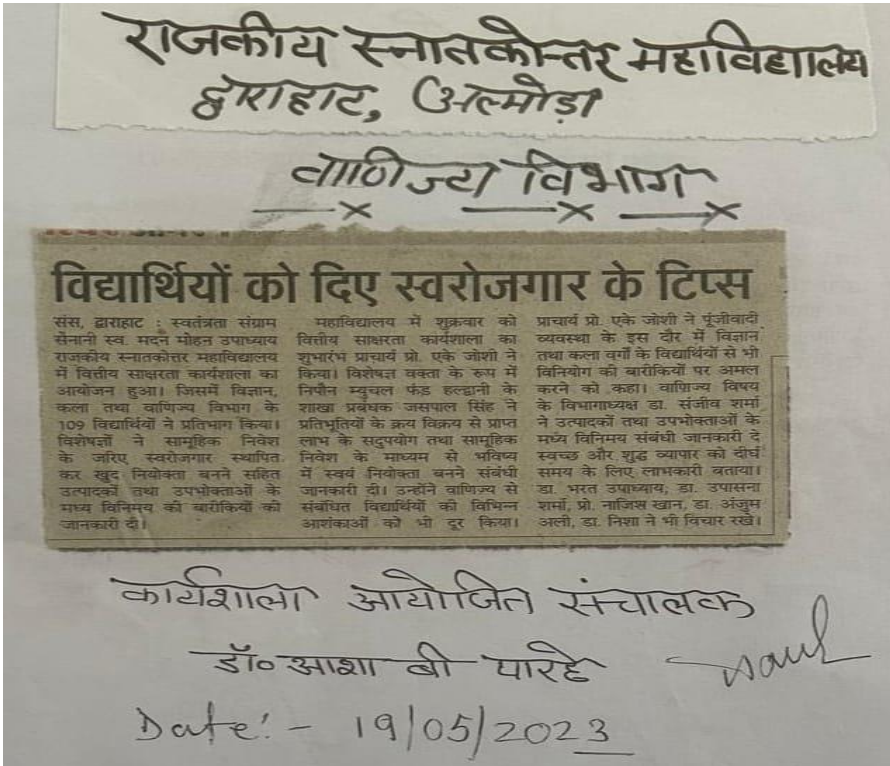 राजकीय स्नातकोत्तर महाविद्यालय
द्वाराहाट, अल्मोड़ा
वाणिज्य विभाग
विद्यार्थियों को दिए स्वरोजगार के टिप्स
संस, द्वाराहाट : स्वतंत्रता संग्राम
सेनानी स्व. मदन मोहन उपाध्याय
राजकीय स्नातकोत्तर महाविद्यालय
में वित्तीय साक्षरता कार्यशाला का
आयोजन हुआ। जिसमें विज्ञान,
कला तथा वाणिज्य विभाग के
109 विद्यार्थियों ने प्रतिभाग किया।
विशेषज्ञों ने सामूहिक निवेश
के जरिए स्वरोजगार स्थापित
कर खुद नियोक्ता बनने सहित
उत्पादकों तथा उपभोक्ताओं के
मध्य विनिमय की बारीकियों की
जानकारी दी।
महाविद्यालय में शुक्रवार को
वित्तीय साक्षरता कार्यशाला का
शुभारंभ प्राचार्य प्रो. एके जोशी ने
किया। विशेषज्ञ वक्ता के रूप में
निपौन म्युचल फंड हल्द्वानी के
शाखा प्रबंधक जसपाल सिंह ने
प्रतिभूतियों के क्रय विक्रय से प्राप्त
लाभ के सदुपयोग तथा सामूहिक
निवेश के माध्यम से भविष्य
में स्वयं नियोक्ता बनने संबंधी
जानकारी दी। उन्होंने वाणिज्य से
संबंधित विद्यार्थियों की विभिन्न
आशंकाओं को भी दूर किया।
प्राचार्य प्रो. एके जोशी ने पूंजीवादी
व्यवस्था के इस दौर में विज्ञान
तथा कला वर्गों के विद्यार्थियों से भी
विनियोग की बारीकियों पर अमल
करने को कहा। वाणिज्य विषय
के विभागाध्यक्ष डा. संजीव शर्मा
ने उत्पादकों तथा उपभोक्ताओं के
मध्य विनिमय संबंधी जानकारी दे
स्वच्छ और शुद्ध व्यापार को दीर्घ
समय के लिए लाभकारी बताया।
डा. भरत उपाध्याय, डा. उपासना
शर्मा, प्रो. नाजिश खान, डा. अंजुम
अली, डा. निशा ने भी विचार रखे।
कार्यशाला आयोजित संचालक
डॉ० आशा बी पारहे
Date:- 19/05/2023